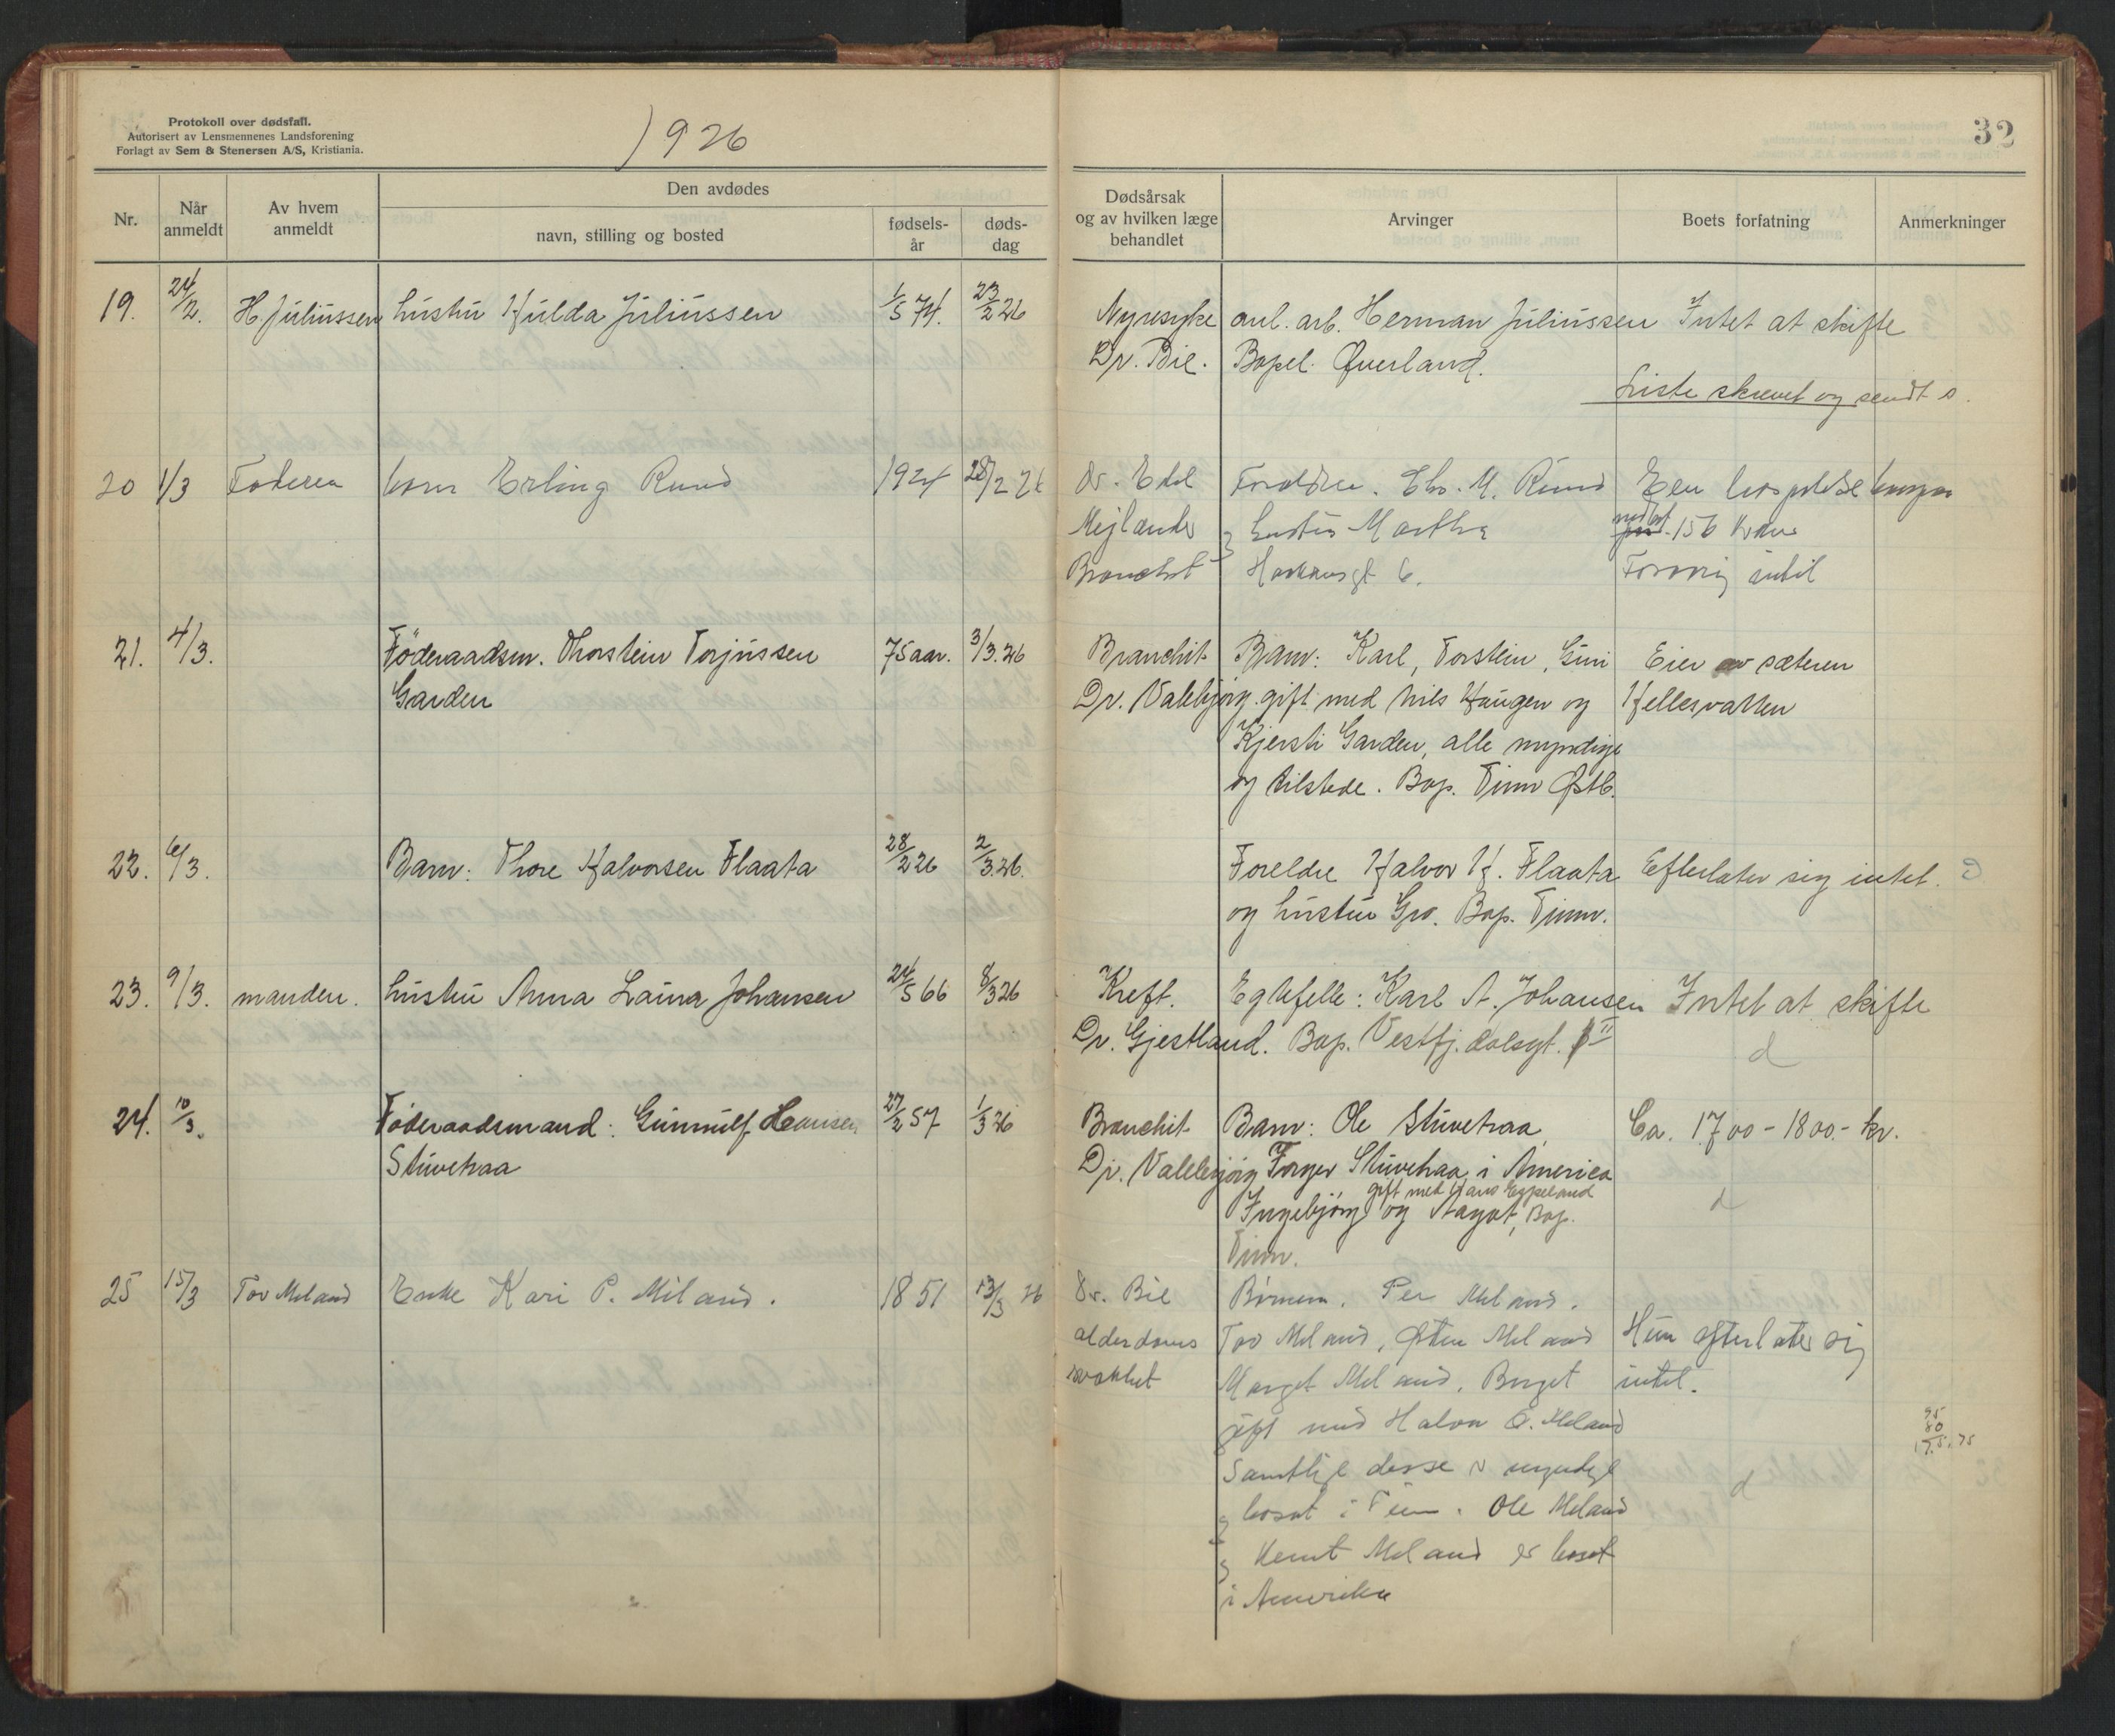 Protokoll over dødsfall.
Autorisert av Lensmennenes Landsforening
Forlagt av Sem & Stenersen A/S, Kristiania.
1926
32
Nr.
Når anmeldt
Av hvem anmeldt
Den avdødes
navn, stilling og bosted
fødsels-år
døds-dag
Dødsårsak og av hvilken læge behandlet
Arvinger
Boets forfatning
Anmerkninger
19. 24/2. H. Juliussen hustru Hulda Juliussen 1/5 74. 23/2 26 Nyresyke anl. arb. Herman Juliussen Intet at skifte
Dr. Bie. Bopel. Øverland.
Liste skrevet og sendt s.
20 1/3 Faderen barn Erling Ruud 1924 28/2 26 Dr. Edel Foreldre. Chr. M. Ruud
Mejlænder og hustru Martha 156 Kroner
Bronchit 6. Forøvrig intil
21. 4/3. Föderaadsm. Thorstein Torjussen 75 aar. 3/3. 26 Bronchit Barn: Karl, Torstein, Guri Eier av sæteren
Garden Dr. Valebjørg. gift med Nils Haugen og Hellesvatten
Kjersti Garden, alle myndige
og tilstede. Bop. Tinn Østb.
22. 6/3. Barn: Thore Halvorsen Flaata 28/2 26 2/3. 26. Foreldre Halvor H. Flaata Efterlater sig intet.
og hustru Gro. Bop. Tinn.
23. 9/3. manden. hustru Anna Laura Johansen 24/5 66 8/3 26 Kreft. Egtefelle: Karl A. Johansen Intet at skifte
Dr. Gjestland. Bop. Vestfj.dalsgt. II
d
24. 10/3. Föderaadsmand: Gunnulf Hansen 27/2 57 1/3 26 Bronchit Barn: Ole Stuvetraa, Ca. 1700 - 1800.- kr.
Stuvetraa Dr. Valebjørg Torger Stuvetraa i America
gift med Hans Eggeland
Ingebjörg og Aagot, Bop.
d
Tinn.
25 15/3 Tov Meland Enke Kari P. Miland. 1851 13/3 26 Dr. Bie Börnene. Per Meland.
alderdoms Tov Meland, Østen Meland Hun efterlater sig
svakhet Marget Meland, Birget intet.
gift med Halvor O. Meland
95
80
17.5.75
Samtlige disse er myndige
d
og bosat i Tinn. Ole Meland
og Knut Meland er bosat
i Amerika